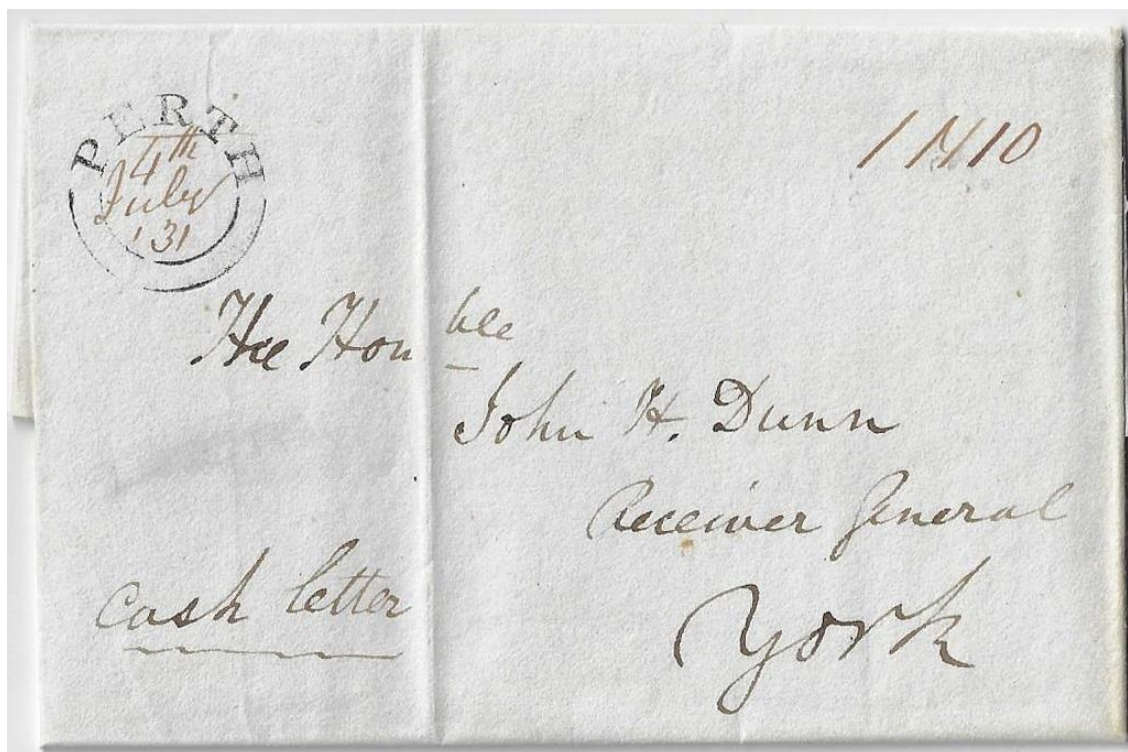 PERTH
4th
July
'31
1 N 10
The Honble
John H. Dunn
Receiver General
Cash letter
York